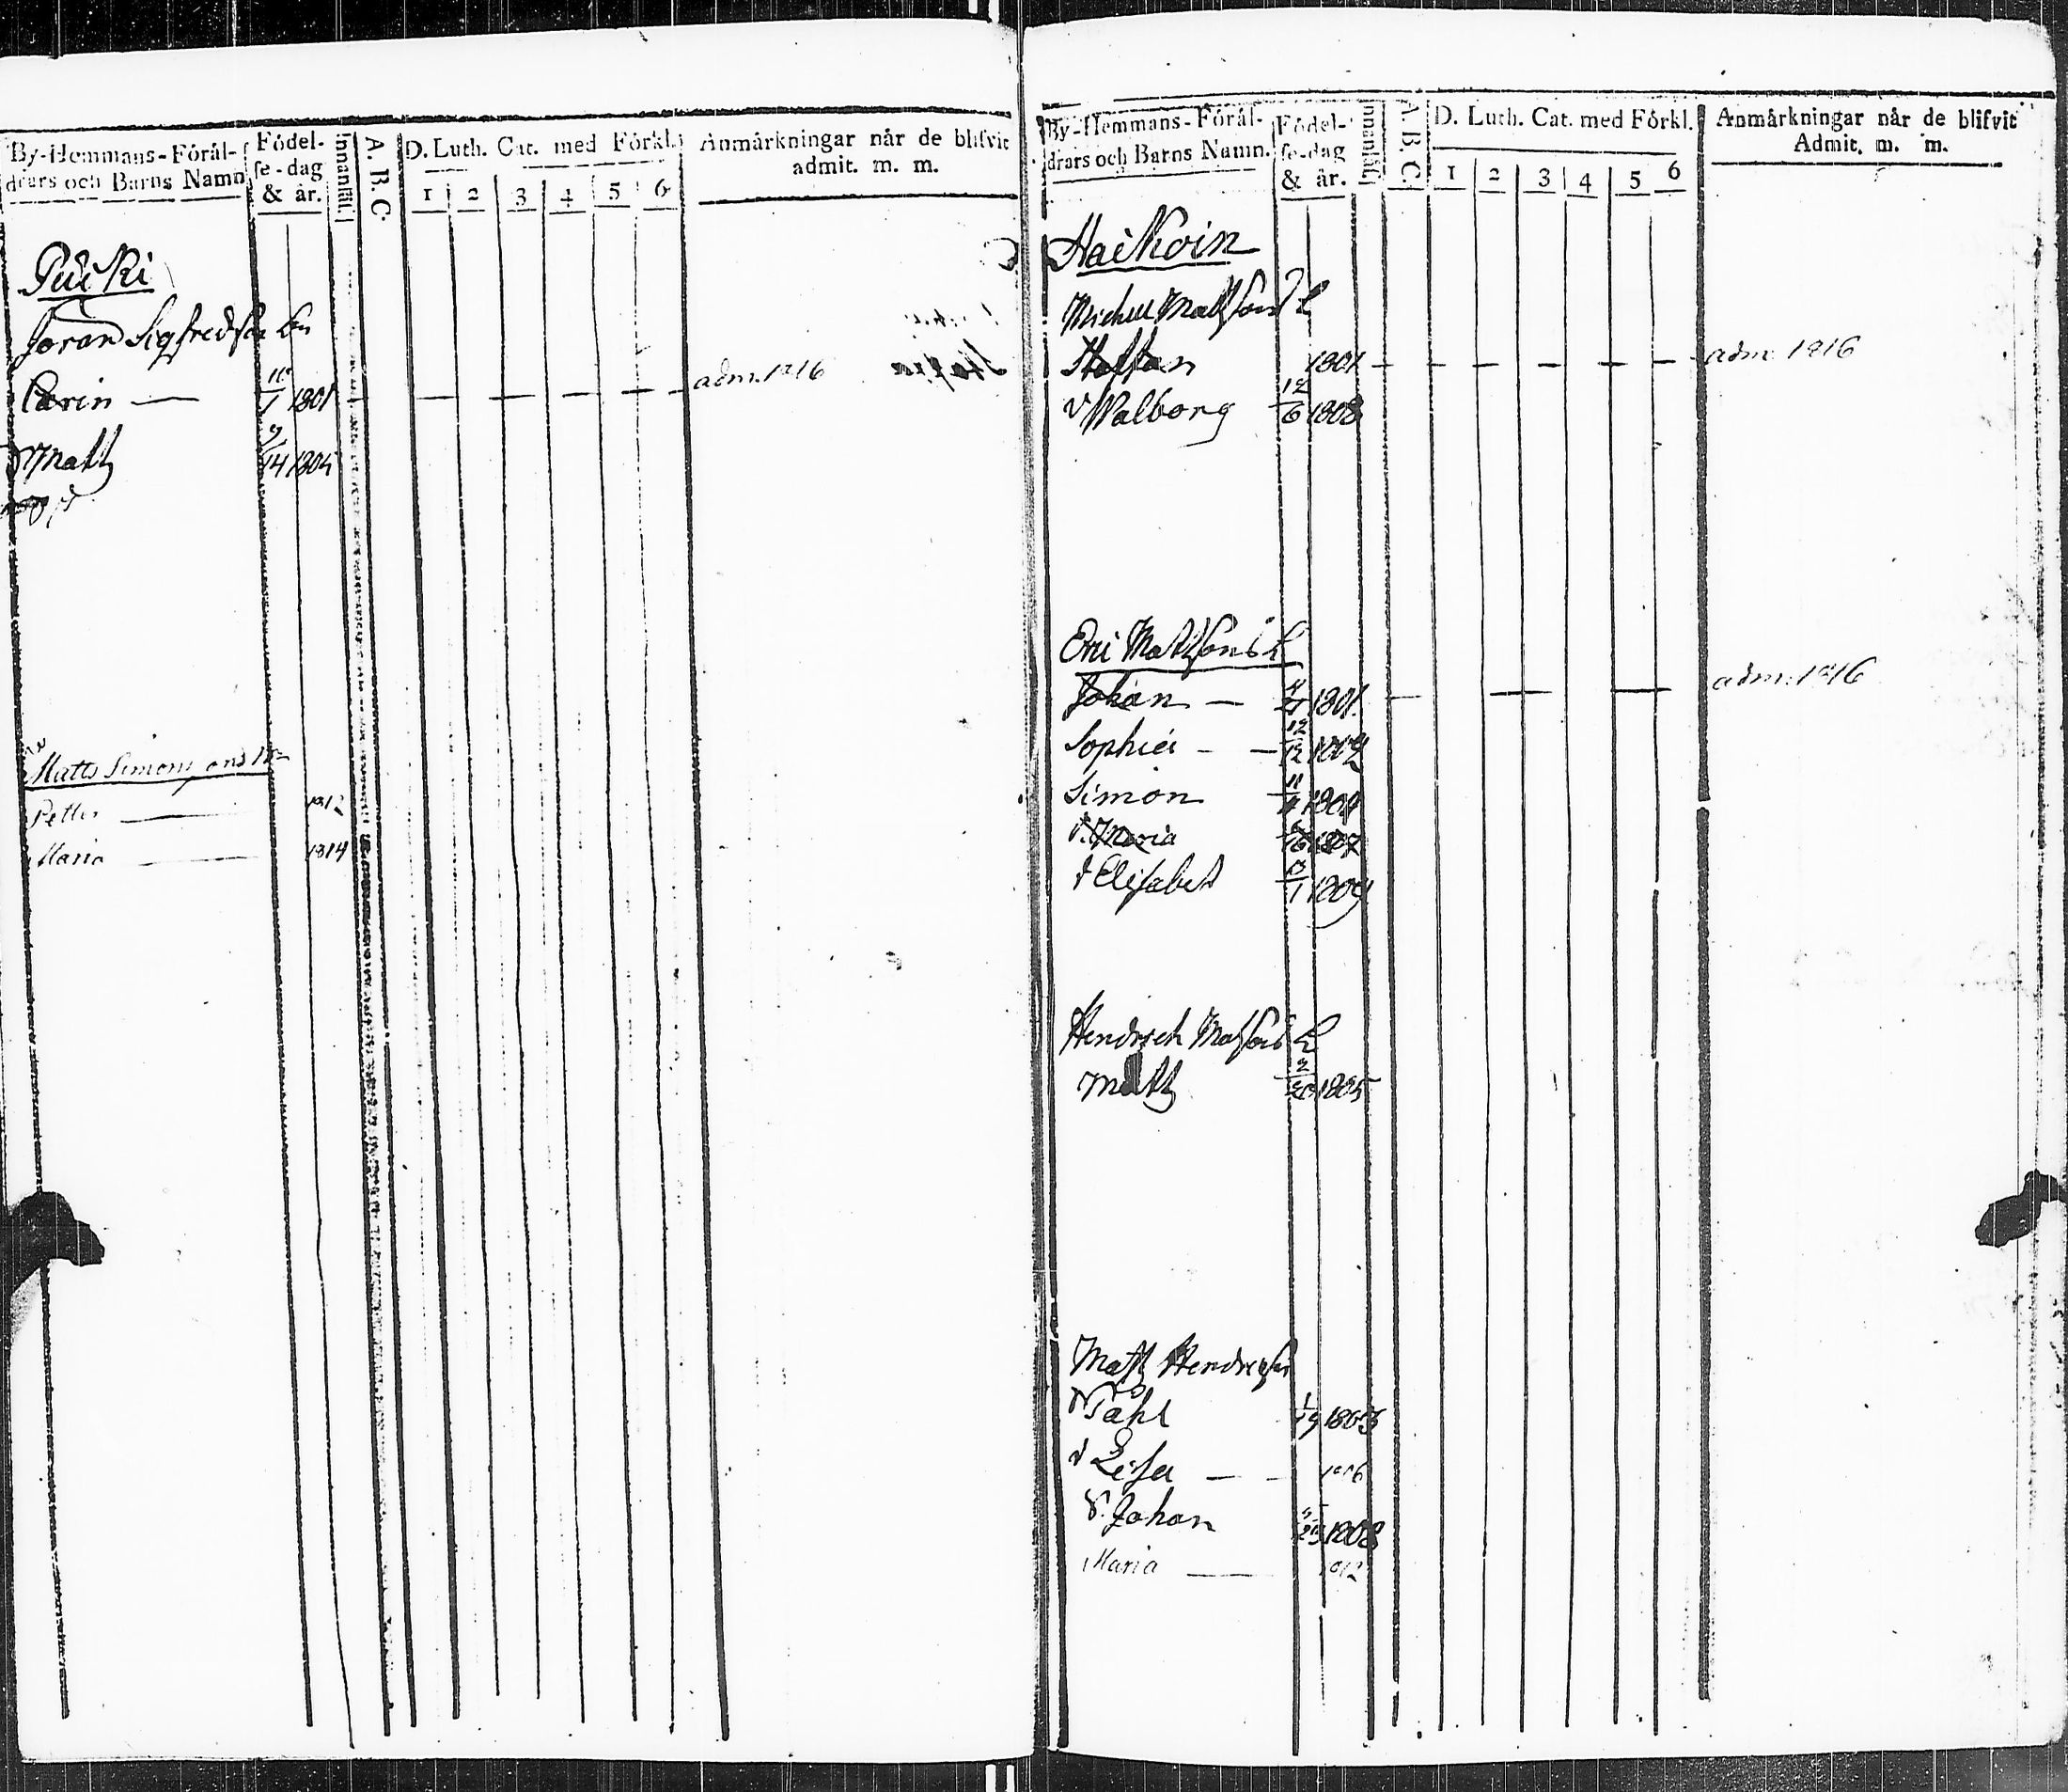 By-Hemmans-Förål-
drars och Barns Namn
Födel-
se-dag
& år.
Innanläf.
A. B. C
D. Luth. Cat. med Förkl.
1 2 3 4 5 6
Anmärkningar når de blifvit
admit. m. m.
Joran Sigfredson
Carin — 1801 adm. 1816
Matts 14
Matts Simonsons
Petter — 1812
Maria — 1814
By-Hemmans-Förål-
drars och Barns Namn.
Födel-
se-dag
& år.
Innanläf.
A. B. C
D. Luth. Cat. med Förkl.
1 2 3 4 5 6
Anmärkningar når de blifvit
Admit. m. m.
Haikoin
Michel Mattsons
Staffan 1801 adm. 1816
Walborg 12/6 1808
Eric Mattsons
Johan — 1801 adm. 1816
Sophia — 12/12
Simon 11
Maria 1807
Elisabet 1 1809
Hendrich Matsons
Matts 1805
Matts Hendricson
Påhl 1/19 1803
Lisa — 1806
Johan 1808
Maria — 1812